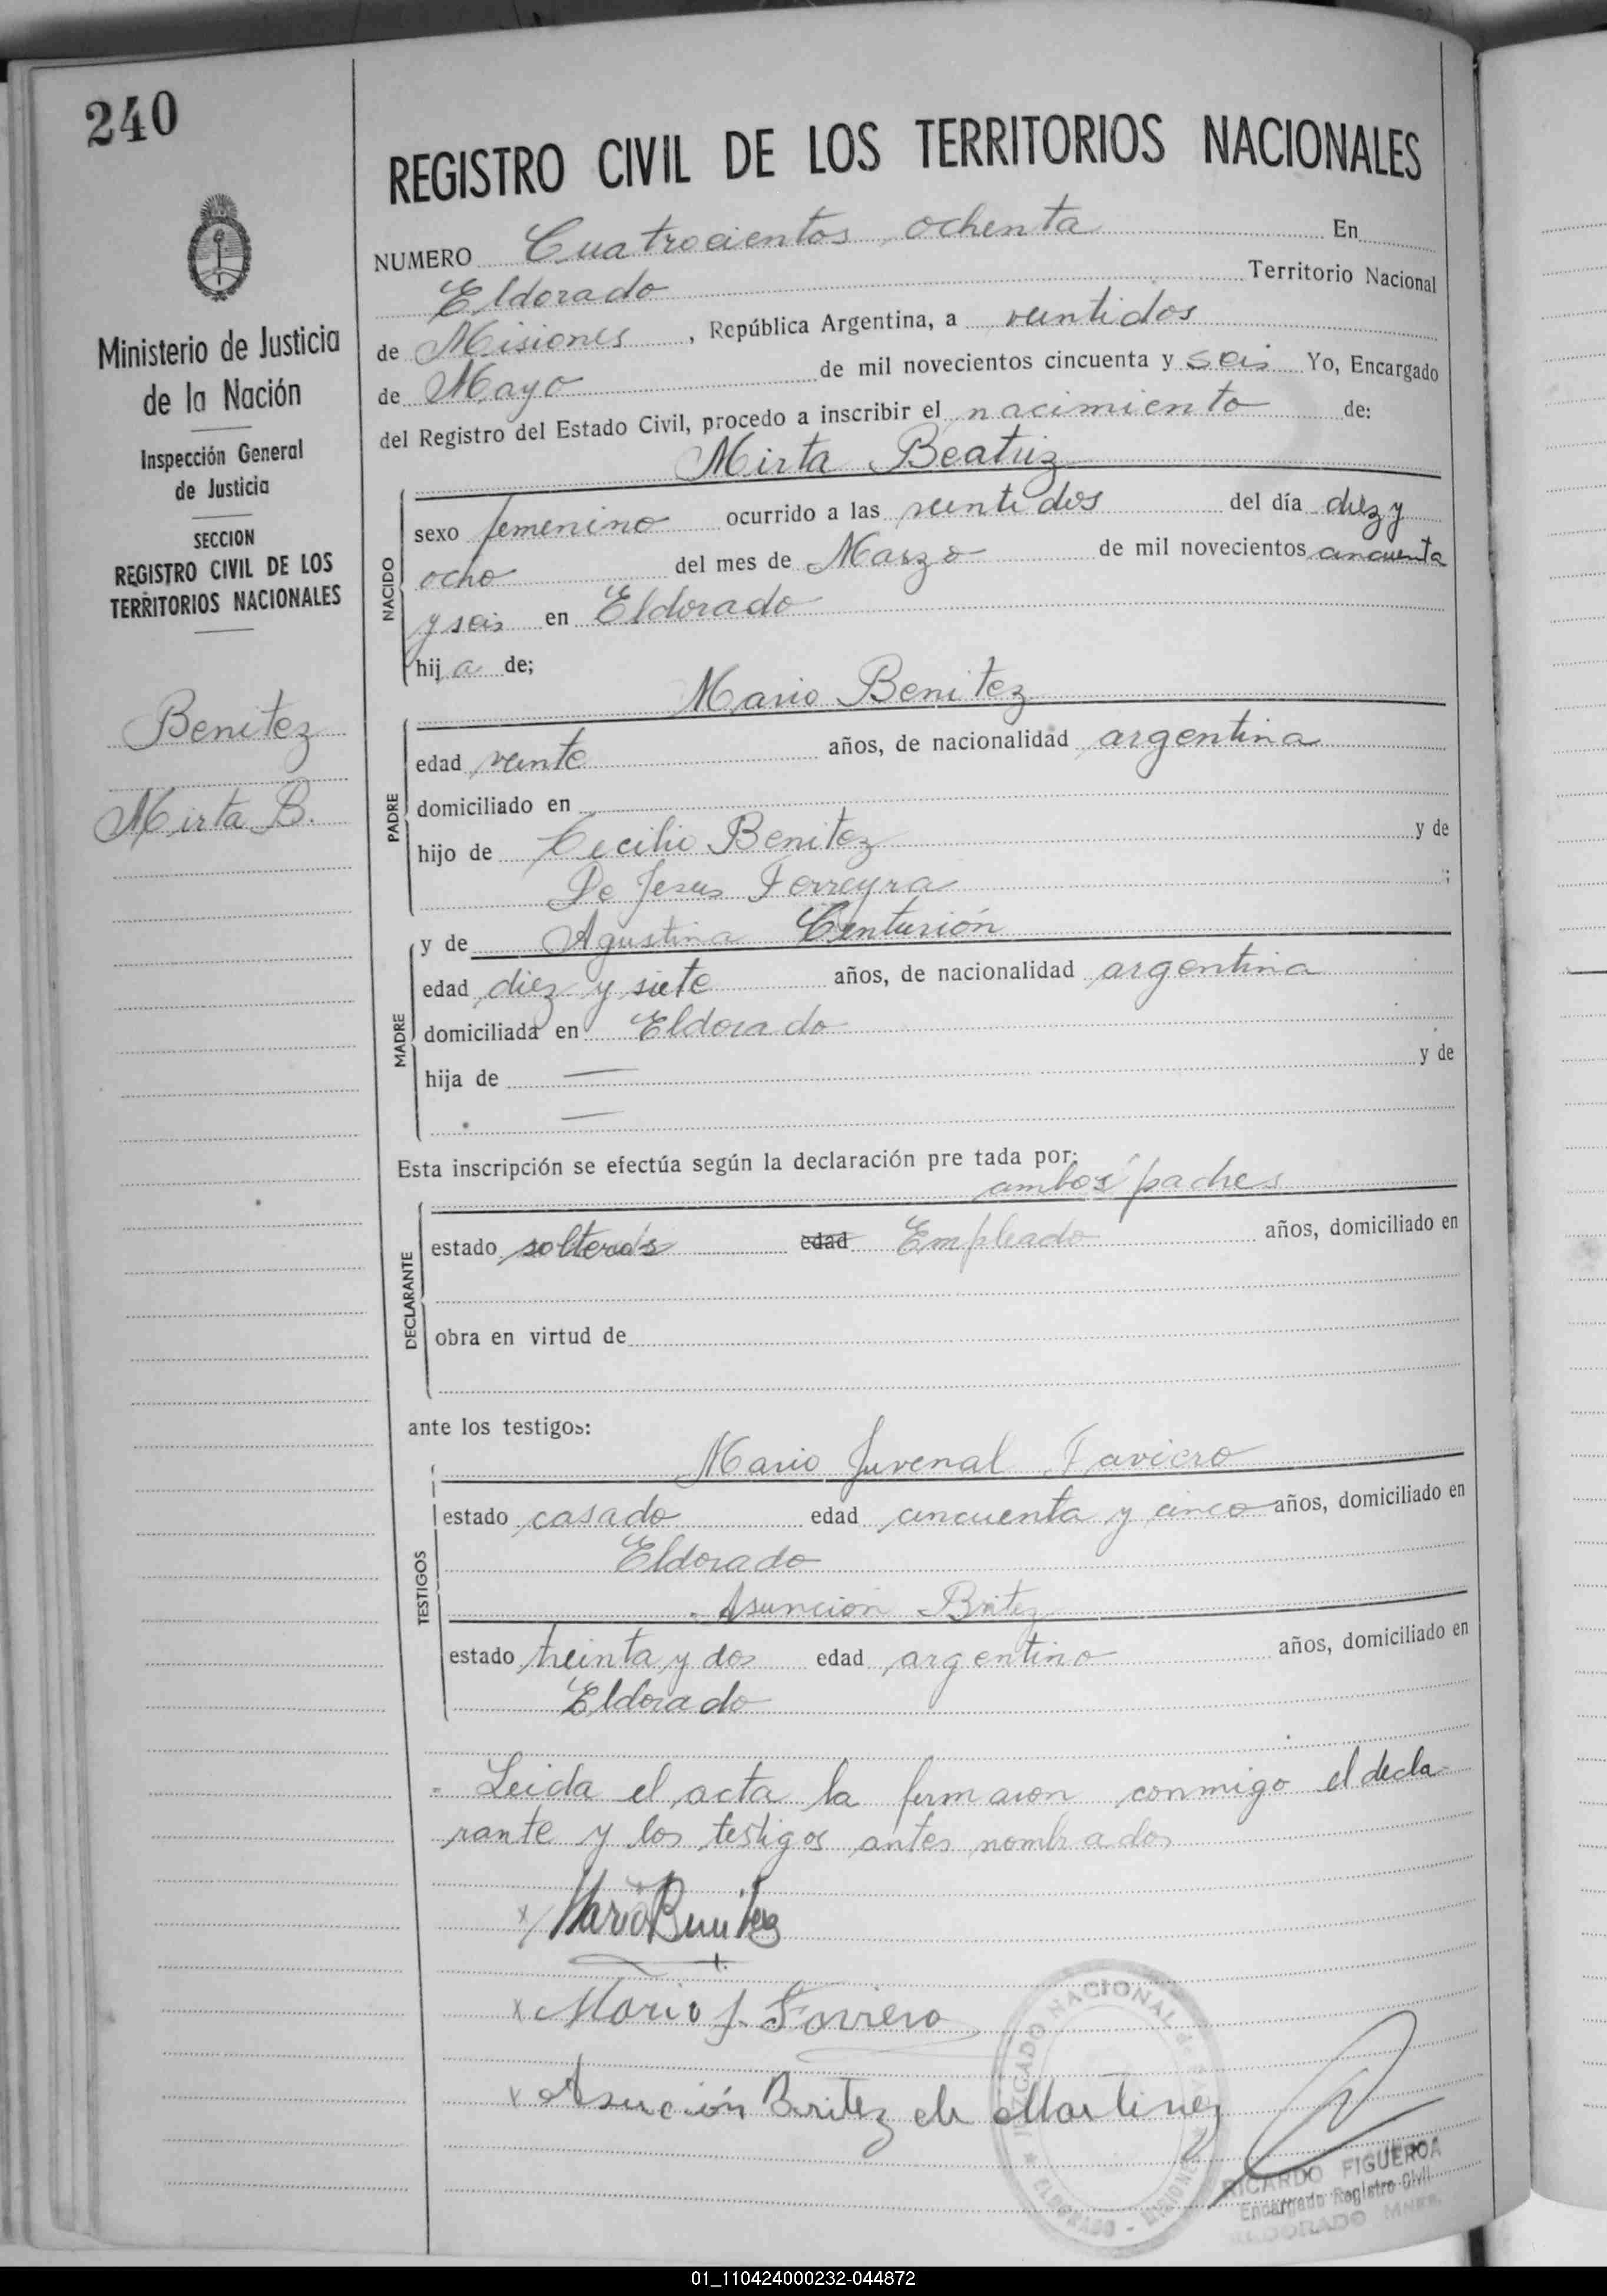 240
Ministerio de Justicia
de la Nación
Inspección General
de Justicia
SECCION
REGISTRO CIVIL DE LOS
TERRITORIOS NACIONALES
Benitez
Mirta B.
REGISTRO CIVIL DE LOS TERRITORIOS NACIONALES
NUMERO Cuatrocientos ochenta En
Eldorado Territorio Nacional
de Misiones, República Argentina, a veintidos
de Mayo de mil novecientos cincuenta y seis Yo, Encargado
del Registro del Estado Civil, procedo a inscribir el nacimiento de:
Mirta Beatriz
NACIDO
sexo femenino ocurrido a las veintidos del día diez y
ocho del mes de Marzo de mil novecientos cincuenta
y seis en Eldorado
hij a de;
Mario Benitez
PADRE
edad veinte años, de nacionalidad argentina
domiciliado en
hijo de Cecilio Benitez y de
De Jesus Ferreyra ;
MADRE
y de Agustina Centurión
edad diez y siete años, de nacionalidad argentina
domiciliada en Eldorado
hija de — y de
—
Esta inscripción se efectúa según la declaración pre tada por:
ambos padres
DECLARANTE
estado solteros edad Empleado años, domiciliado en
obra en virtud de
ante los testigos:
Mario Juvenal Faviero
TESTIGOS
estado casado edad cincuenta y cinco años, domiciliado en
Eldorado
Asuncion Britez
estado treinta y dos edad argentino años, domiciliado en
Eldorado
- Leida el acta la firmaron conmigo el decla-
rante y los testigos antes nombrados
x Mario Benitez
x Mario J. Faviero
x Asución Beritez de Martinez
JUZGADO NACIONAL de PAZ
ELDORADO - MISIONES
RICARDO FIGUEROA
Encargado Registro Civil
ELDORADO MNES.
01_110424000232-044872